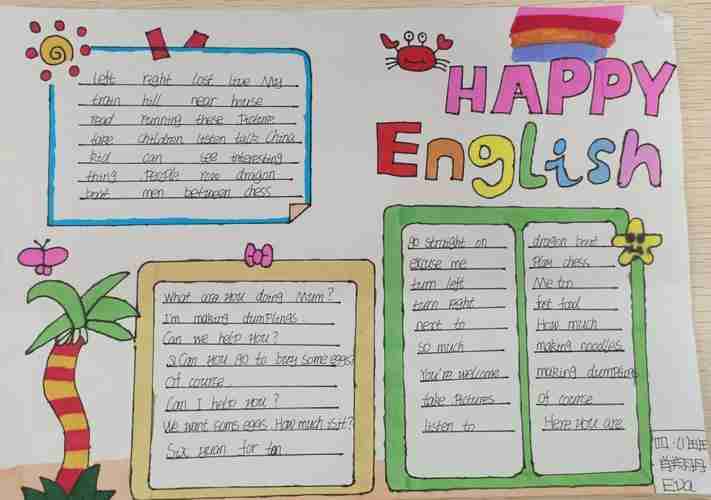 HAPPY
English
left right lost live My
train hill near house
road running these Picture
take children listen talk China
kid can see interesting
thing People row dragon
boat men between chess
What are you doing Mum?
I'm making dumplings.
Can we help you?
Can you go to buy some eggs?
Of course
Can I help you?
We want some eggs. How much is it?
Six yuan for
go straight on
excuse me
turn left
turn right
next to
so much
You're welcome
take Pictures
listen to
dragon boat
Play chess
Me too
fast food
How much
making noodles
making dumplings
Of course
Here you are
四·01班
Eva